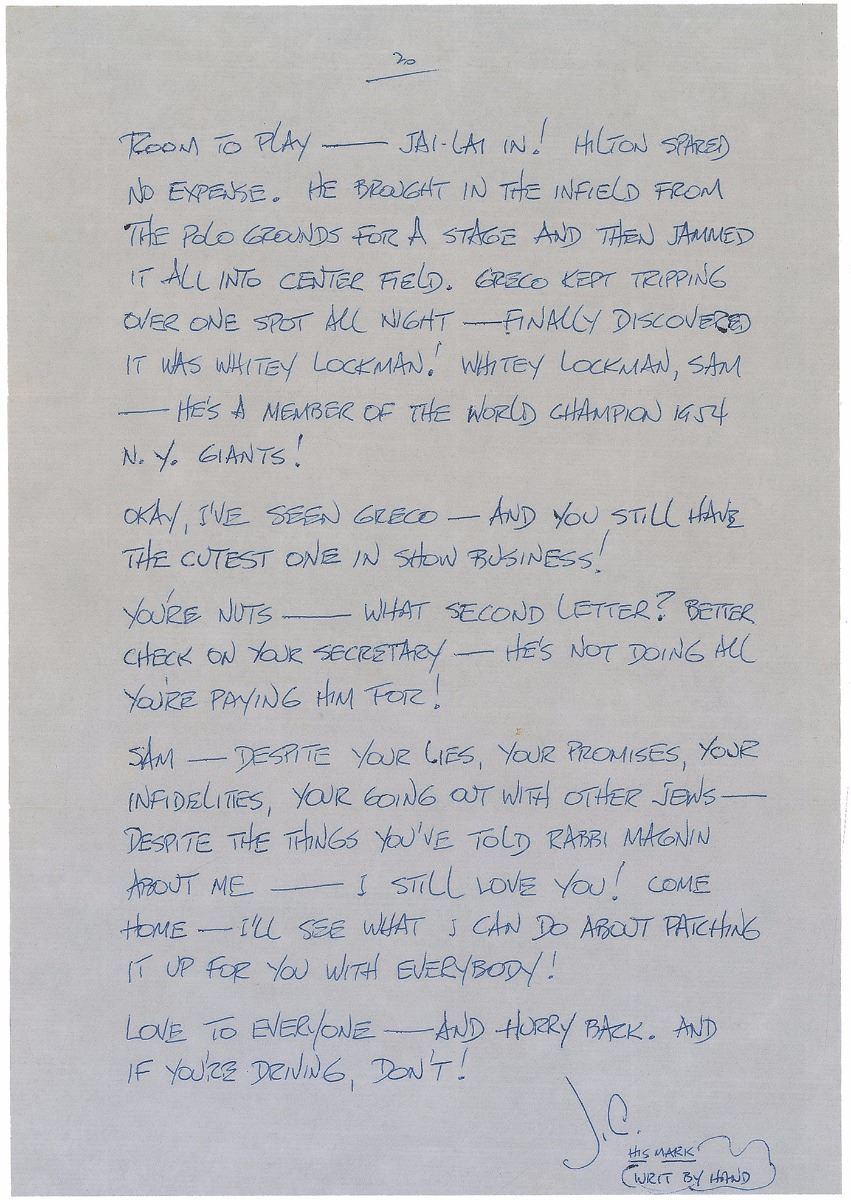 20
ROOM TO PLAY — JAI-LAI IN! HILTON SPARED
NO EXPENSE. HE BROUGHT IN THE INFIELD FROM
THE POLO GROUNDS FOR A STAGE AND THEN JAMMED
IT ALL INTO CENTER FIELD. GRECO KEPT TRIPPING
OVER ONE SPOT ALL NIGHT — FINALLY DISCOVERED
IT WAS WHITEY LOCKMAN! WHITEY LOCKMAN, SAM
— HE'S A MEMBER OF THE WORLD CHAMPION 1954
N.Y. GIANTS!
OKAY, I'VE SEEN GRECO — AND YOU STILL HAVE
THE CUTEST ONE IN SHOW BUSINESS!
YOU'RE NUTS — WHAT SECOND LETTER? BETTER
CHECK ON YOUR SECRETARY — HE'S NOT DOING ALL
YOU'RE PAYING HIM FOR!
SAM — DESPITE YOUR LIES, YOUR PROMISES, YOUR
INFIDELITIES, YOUR GOING OUT WITH OTHER JEWS —
DESPITE THE THINGS YOU'VE TOLD RABBI MAGNIN
ABOUT ME — I STILL LOVE YOU! COME
HOME — I'LL SEE WHAT I CAN DO ABOUT PATCHING
IT UP FOR YOU WITH EVERYBODY!
LOVE TO EVERYONE — AND HURRY BACK. AND
IF YOU'RE DRIVING, DON'T!
J.C.
HIS MARK
WRIT BY HAND